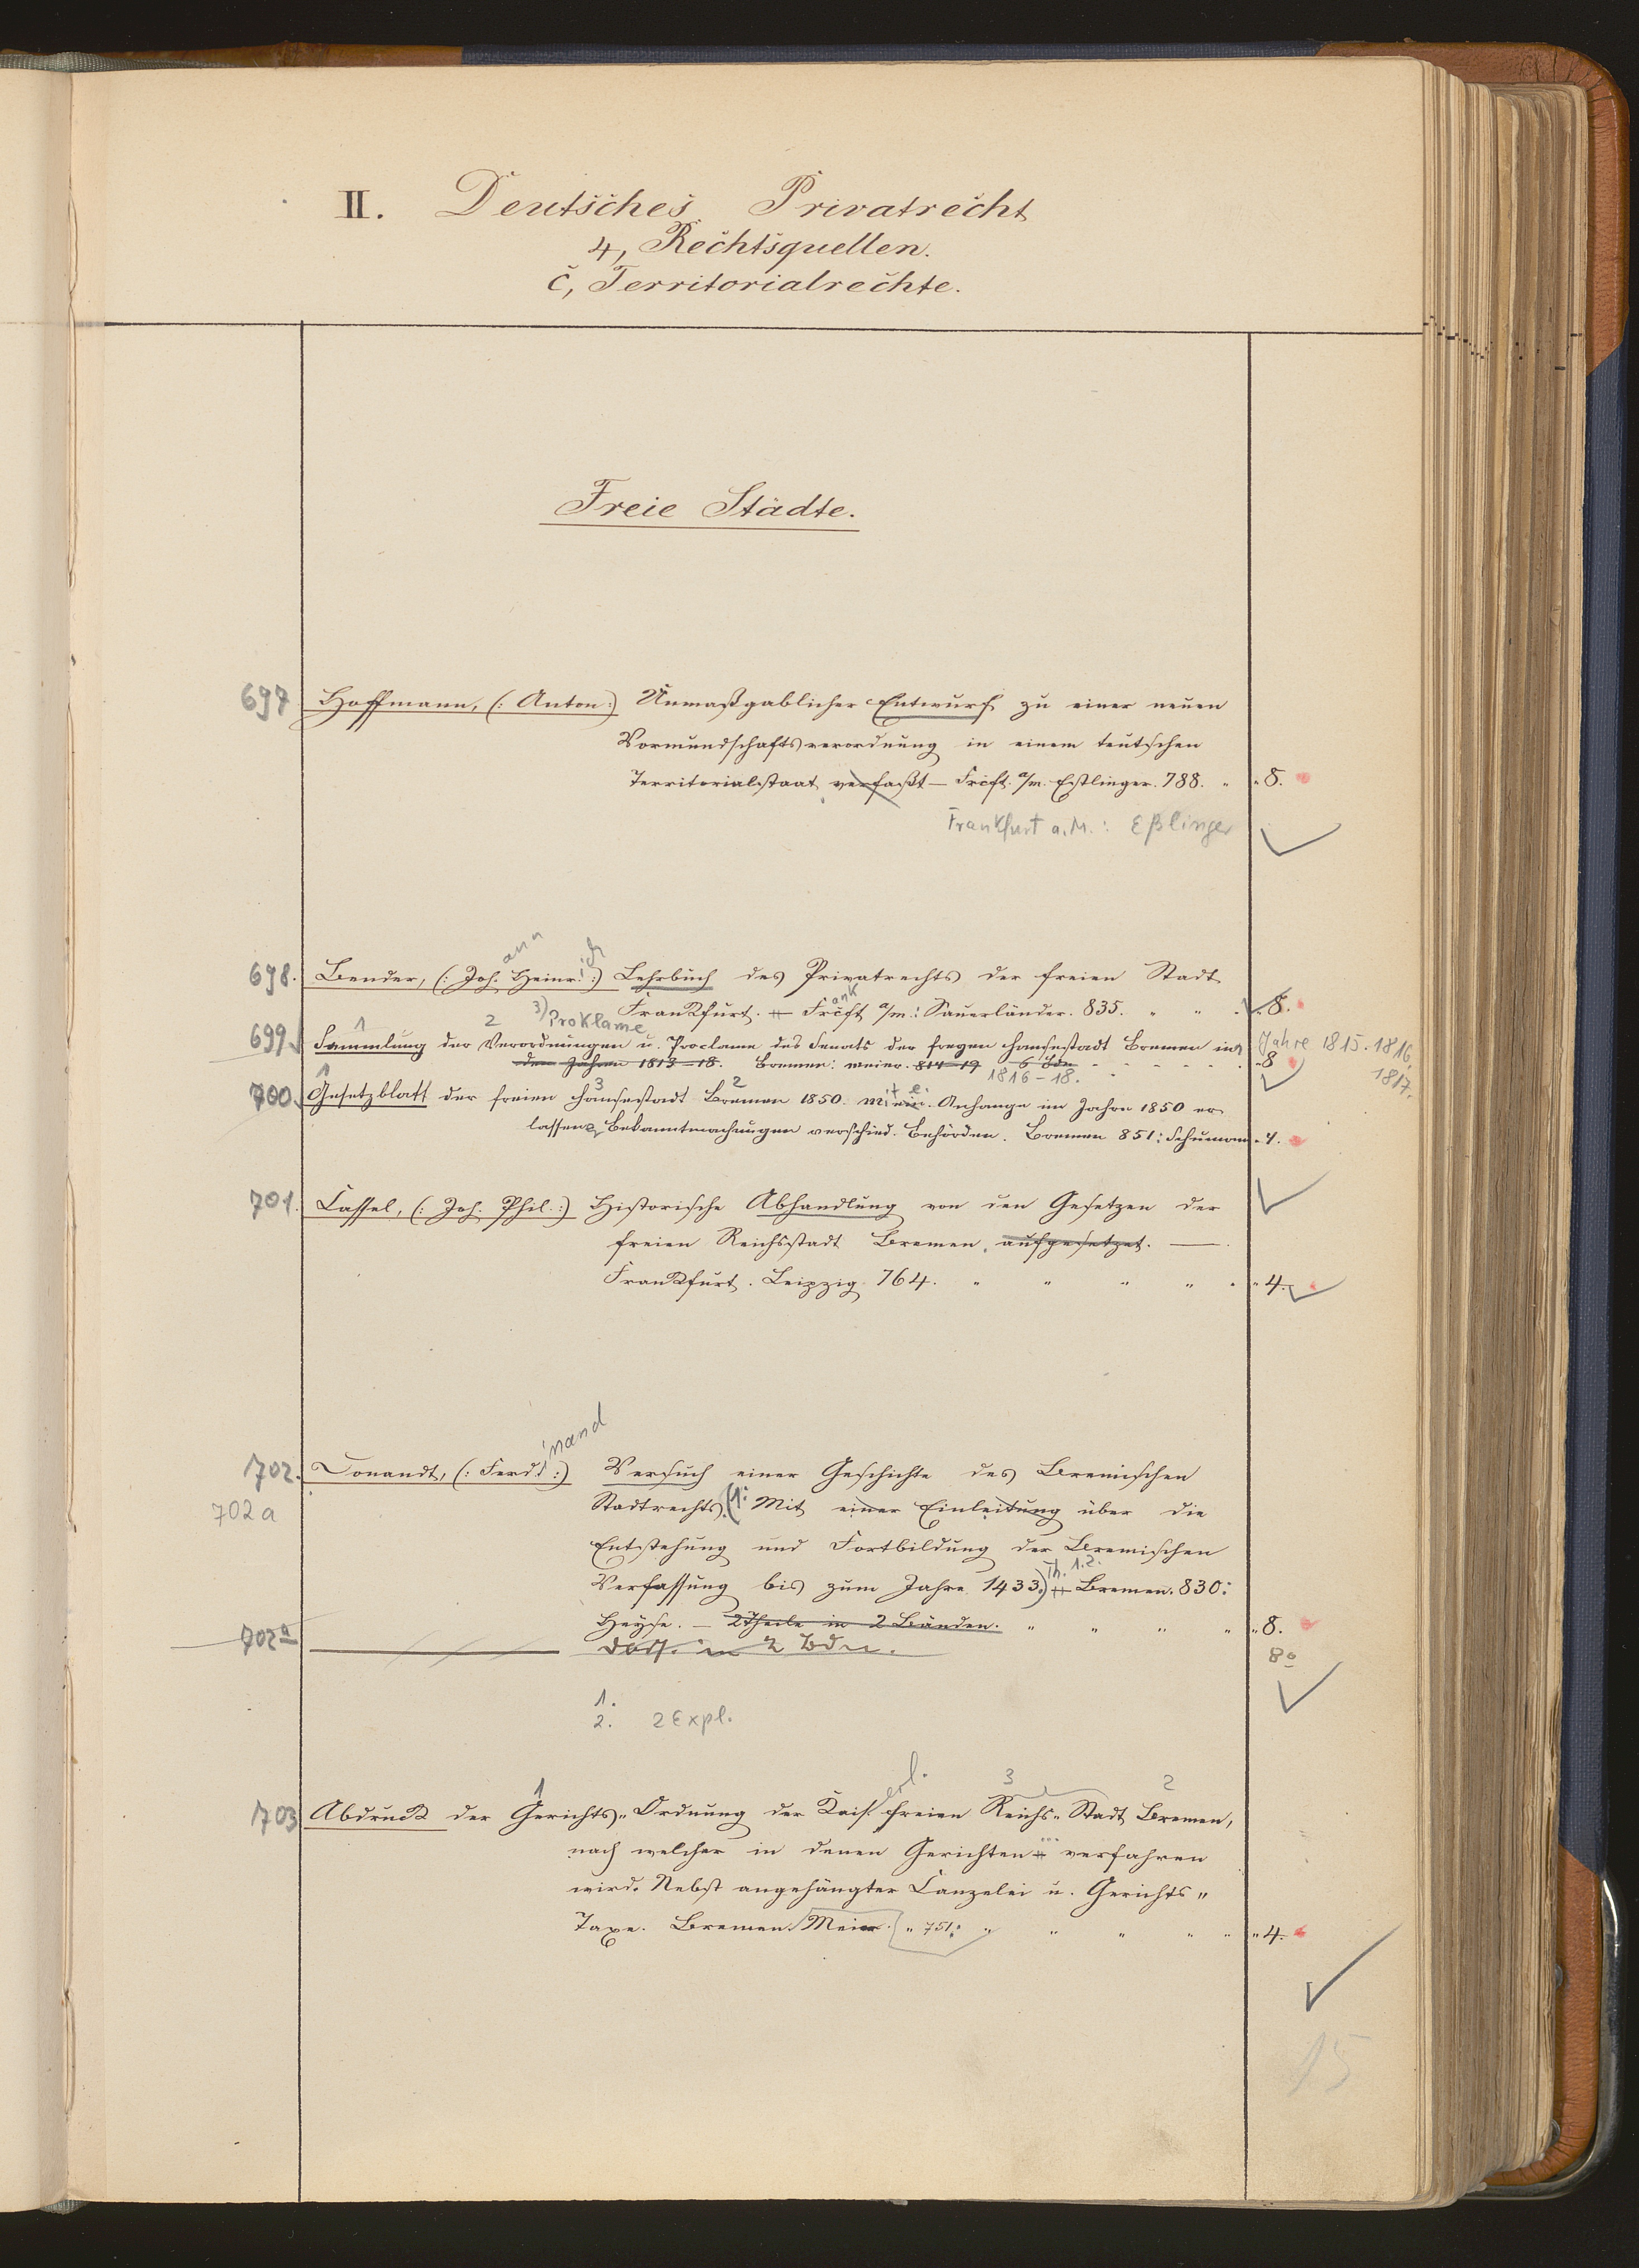 II. Deutsches Privatrecht
4, Rechtsquellen.
c, Territorialrechte.
Freie Städte.
697 Hoffmann, (: Anton :) Unmaßgablicher Entwurf zu einer neuen
Vormundschaftsverordnung in einem teutschen
Territorialstaat verfaßt — Frcft. a/m. Eßlinger. 788. " " 8.
Frankfurt a.M.: Eßlinger
698. Bender, (: Joh.ann Heinr.ich :) Lehrbuch des Privatrechts der freien Stadt
Frankfurt. — Frankft a/m.: Sauerländer. 835. " " " 8.
1 2 3) Proklame
699 Sammlung der Verordnungen u. Proclame des Senats der freyen Hansestadt Bremen in Jahre 1815. 1816. 1817.
den Jahren 1813–18. Bremen: Meier. 814–19 6 Bde " 8
1816–18.
1 3 2
700. Gesetzblatt der freien Hansestadt Bremen 1850. Mit ein. Anhange im Jahre 1850 er
lassene Bekanntmachungen verschied. Behörden. Bremen 851: Schumann " 4.
701. Cassel, (: Joh. Phil. :) Historische Abhandlung von den Gesetzen der
freien Reichsstadt Bremen, aufgesetzet. —
Frankfurt. Leipzig 764. " " " " " 4.
702. Donandt, (: Ferd.inand :) Versuch einer Geschichte des Bremischen
702a Stadtrechts (1: Mit einer Einleitung über die
Entstehung und Fortbildung der Bremischen
Verfassung bis zum Jahre 1433.) Th. 1.2. Bremen. 830:
Heyse. — 2 Theile in 2 Bänden. " " " " " 8.
702a ——— dass. in 2 Bdn. 8o
1.
2. 2 Expl.
1 3 2
703 Abdruck der Gerichts-Ordnung der Kais.erl. freien Reichs-Stadt Bremen,
nach welcher in denen Gerichten ... verfahren
wird. Nebst angehängter Canzelei u. Gerichts-
Taxe. Bremen. Meier. " 751: " " " " " 4.
15